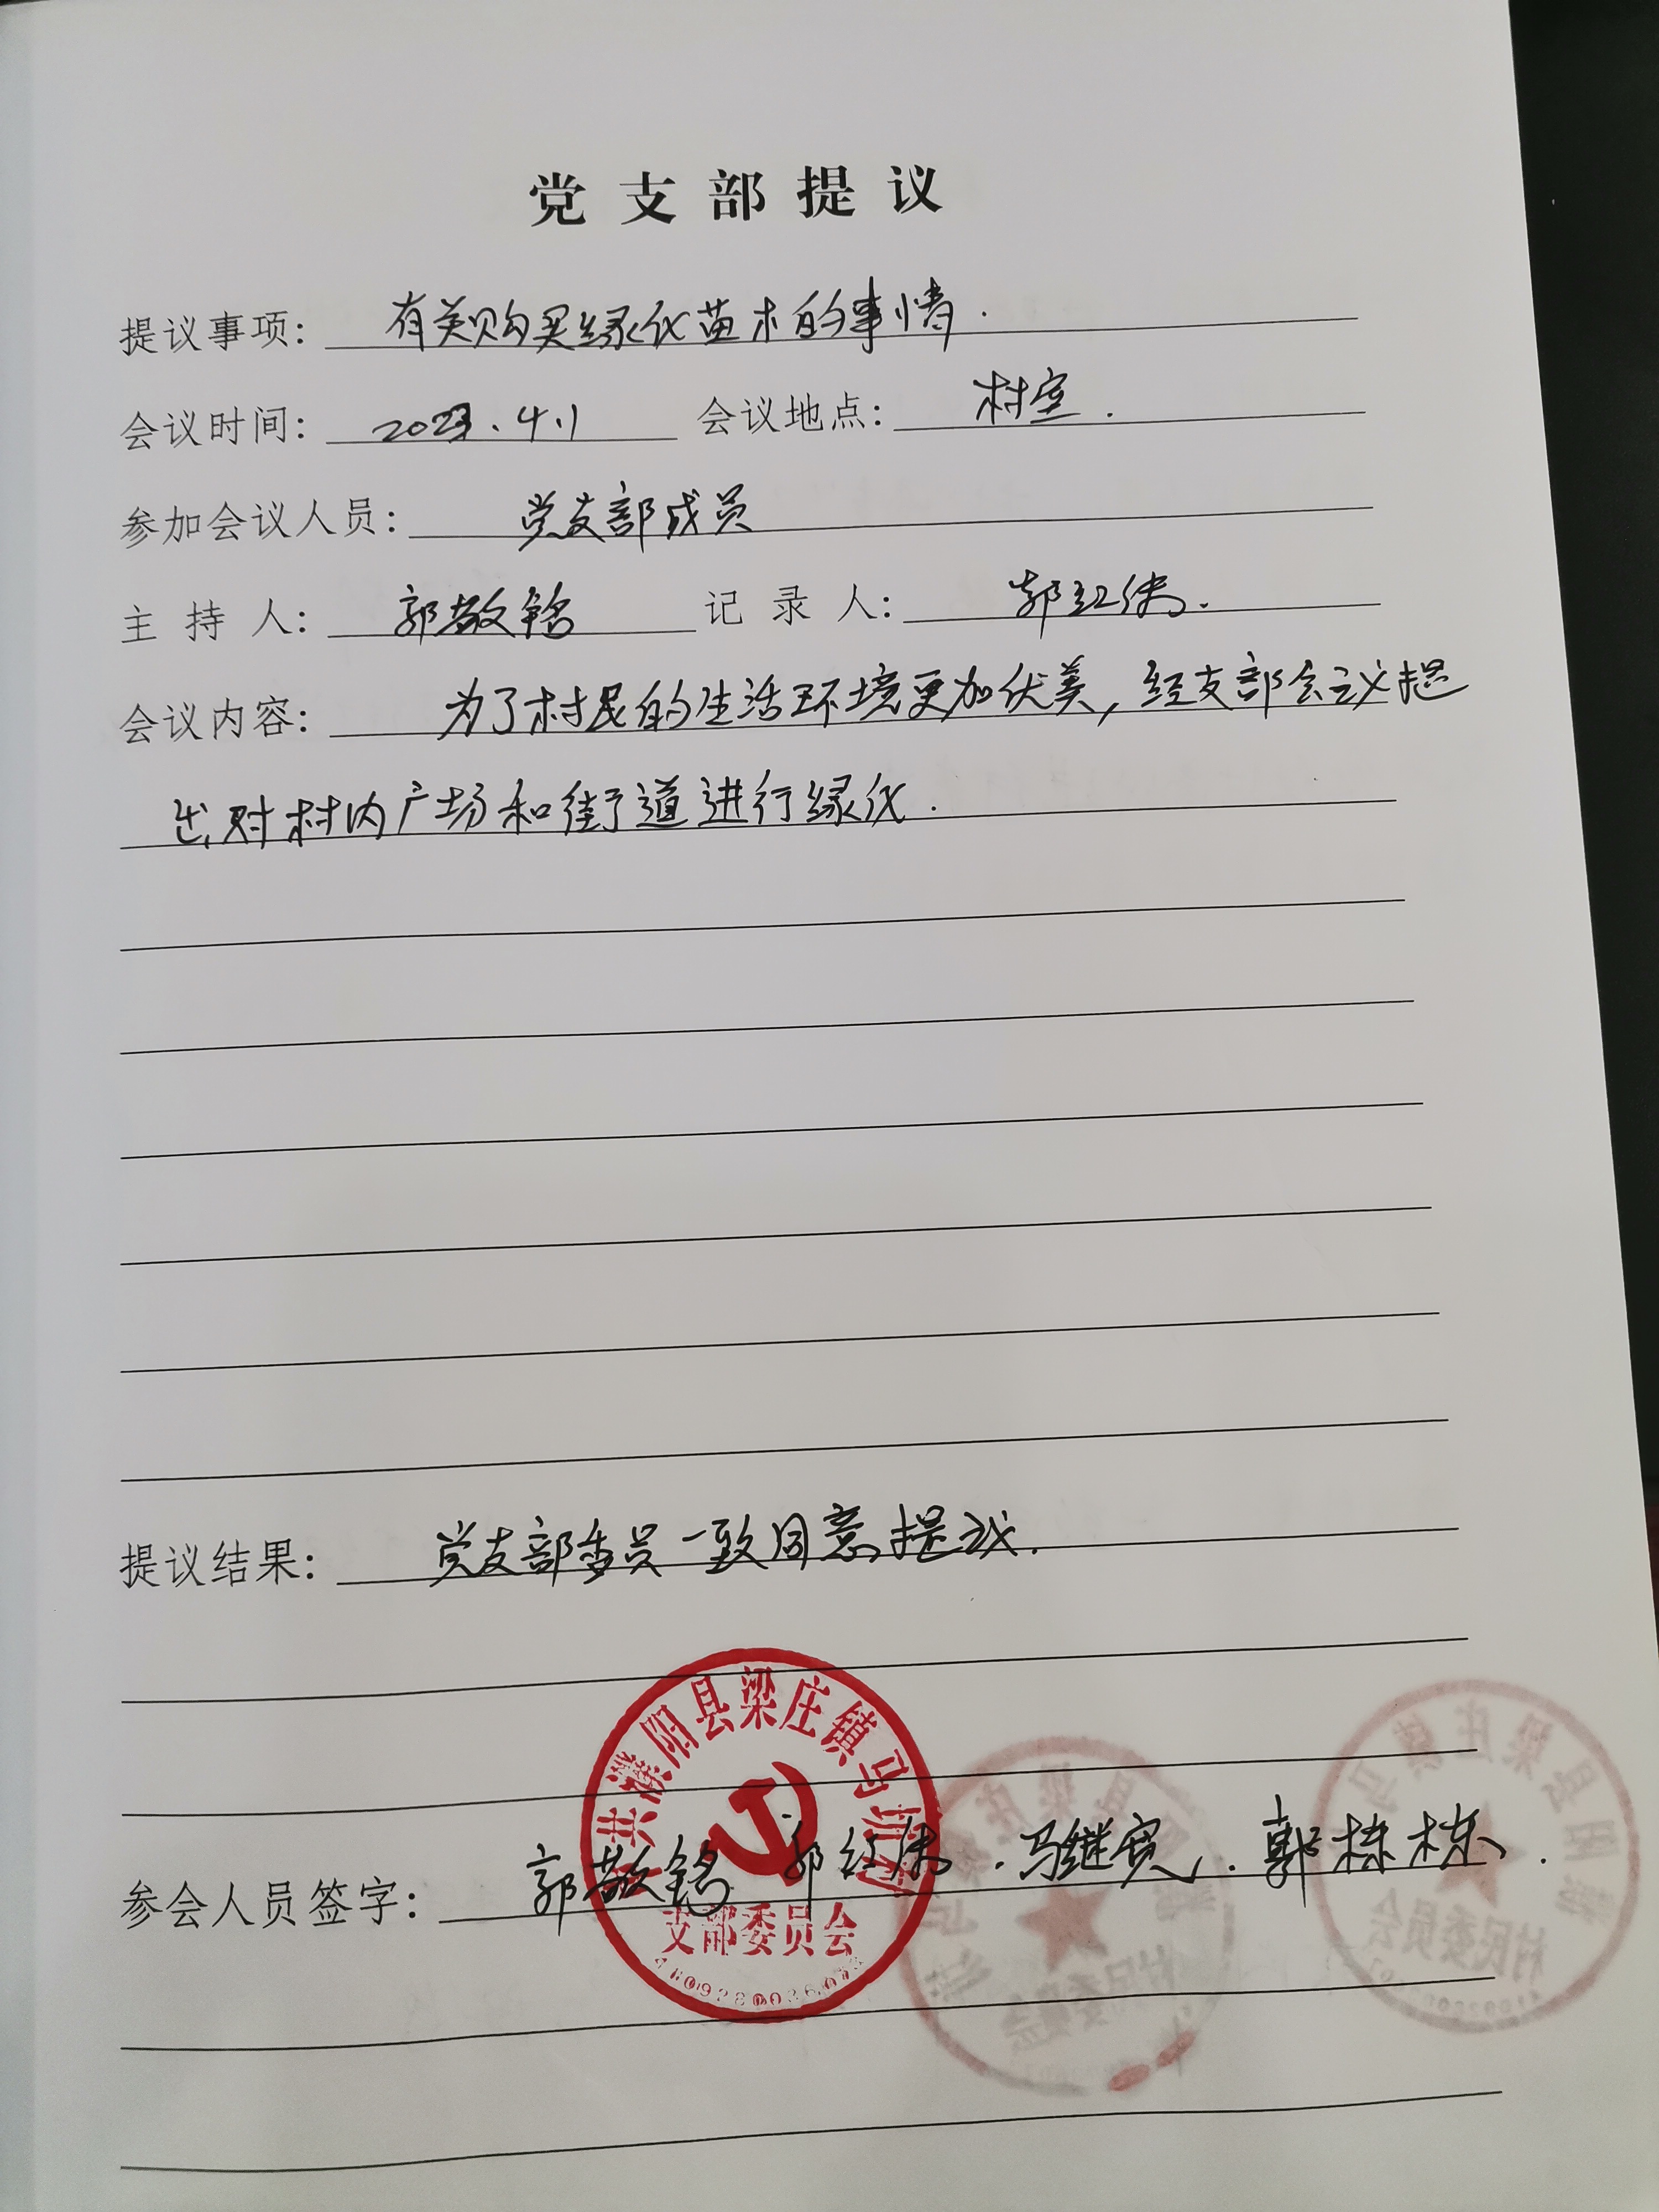 党支部提议
提议事项: 有关购买绿化苗木的事情.
会议时间: 2023.4.1 会议地点: 村室.
参加会议人员: 党支部成员
主持人: 郭敬铭 记录人: 郭红伟.
会议内容: 为了村民的生活环境更加优美,经支部会议提
出,对村内广场和街道进行绿化.
提议结果: 党支部委员一致同意提议.
共濮阳县梁庄镇马
参会人员签字: 郭敬铭 郭红伟.马继宽,.郭栋栋.
支部委员会
村民委员会